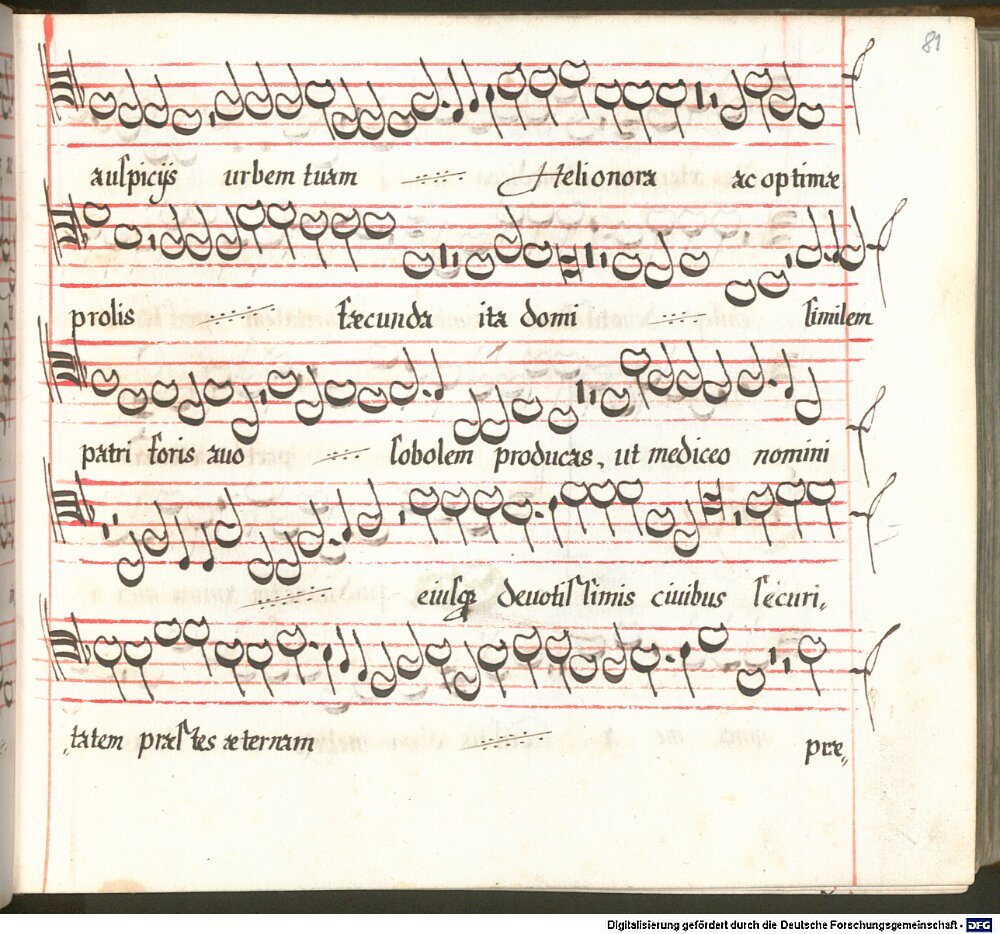 81
auſpicijs urbem tuam Helionora ac optimæ
prolis fæcunda ita domi ſimilem
patri foris auo ſobolem producas, ut mediceo nomini
eiuſqꝫ deuotiſſimis ciuibus ſecuri,,
,,tatem præſtes æternam præ,,
Digitalisierung gefördert durch die Deutsche Forschungsgemeinschaft - DFG